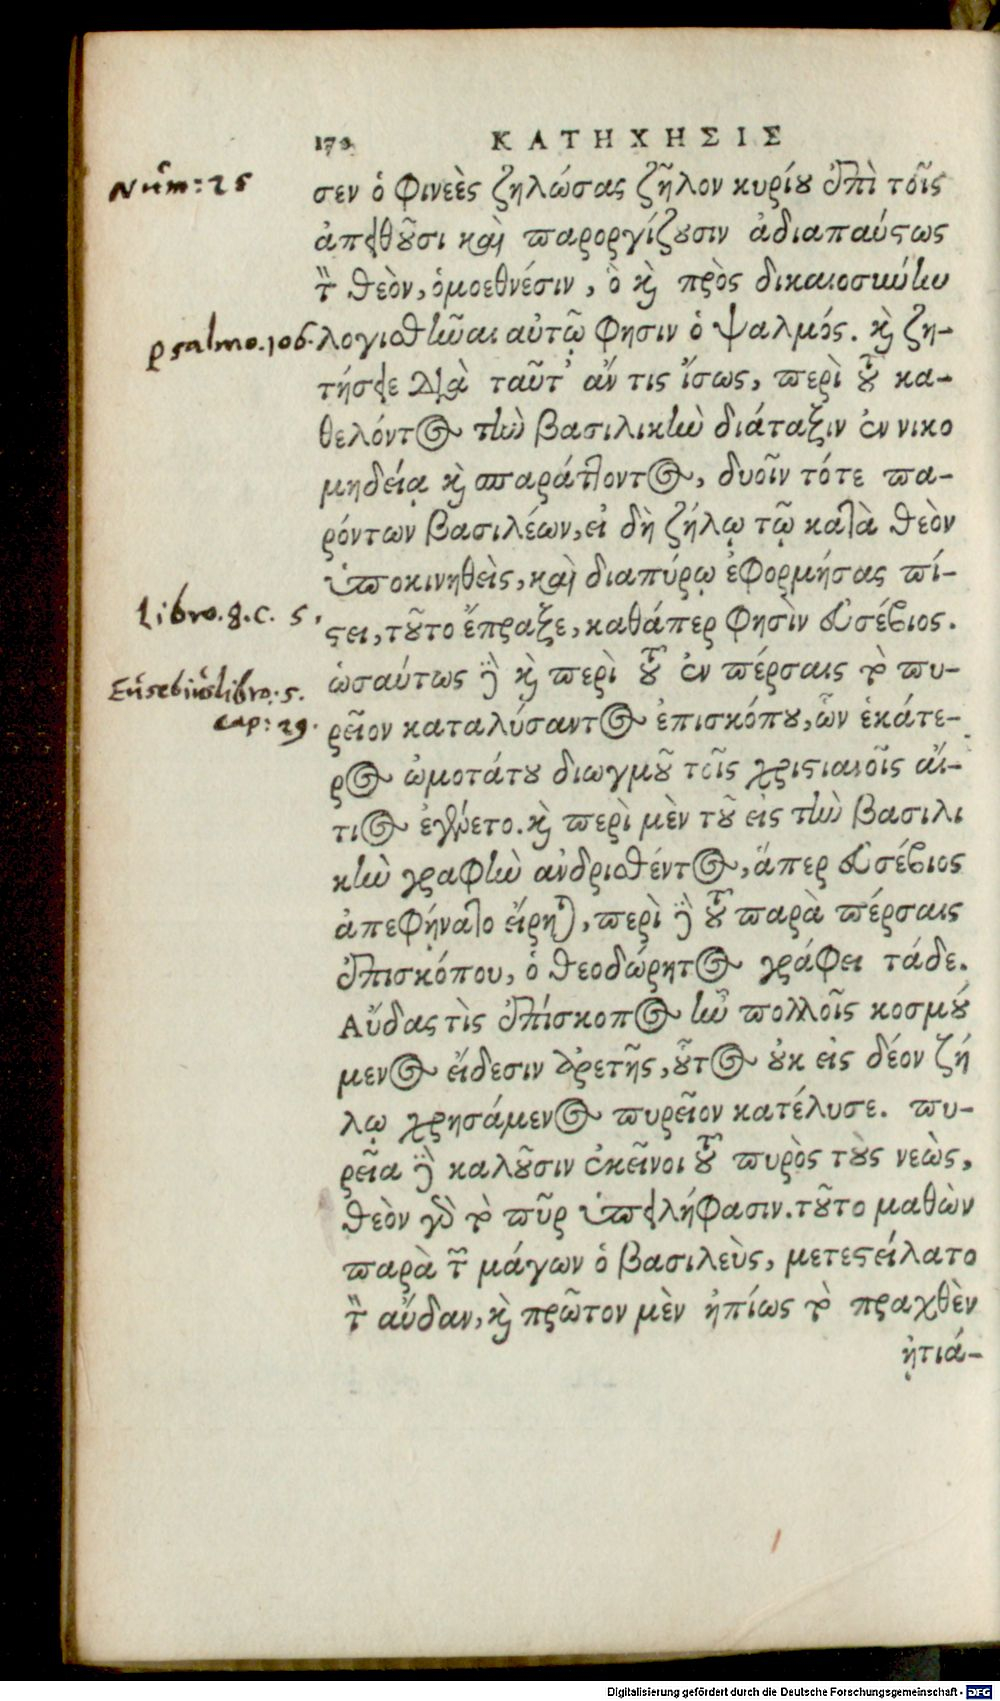 170 ΚΑΤΗΧΗΣΙΣ
Núm: 25
σεν ὁ Φινεὲς ζηλώσας ζῆλον κυρίου ἐπὶ τοῖς
ἀπειθοῦσι καὶ παροργίζουσιν ἀδιαπαύστως
τὸν θεὸν, ὁμοεθνέσιν, ὃ καὶ πρὸς δικαιοσύνην
psalmo. 106.
λογισθῆναι αὐτῷ φησιν ὁ ψαλμός. καὶ ζη-
τήσειε διὰ ταῦτ' ἄν τις ἴσως, περὶ τοῦ κα-
θελόντος τὴν βασιλικὴν διάταξιν ἐν νικο
μηδείᾳ καὶ σπαράττοντος, δυοῖν τότε πα-
ρόντων βασιλέων, εἰ δὴ ζήλῳ τῷ κατὰ θεὸν
ὑποκινηθεὶς, καὶ διαπύρῳ ἐφορμήσας πί-
Libro. 8. C. 5.
στει, τοῦτο ἔπραξε, καθάπερ φησὶν εὐσέβιος.
ὡσαύτως δὲ καὶ περὶ τοῦ ἐν πέρσαις τὸ πυ-
Eúsebiús libro: 5.
cap: 29.
ρεῖον καταλύσαντος ἐπισκόπου, ὧν ἑκάτε-
ρος ὠμοτάτου διωγμοῦ τοῖς χριστιανοῖς αἴ-
τιος ἐγένετο. καὶ περὶ μὲν τοῦ εἰς τὴν βασιλι
κὴν γραφὴν ἀνδρισθέντος, ἅπερ εὐσέβιος
ἀπεφήνατο εἴρηται, περὶ δὲ τοῦ παρὰ πέρσαις
ἐπισκόπου, ὁ θεοδώρητος γράφει τάδε.
Αὔδας τὶς ἐπίσκοπος ἦν πολλοῖς κοσμού
μενος εἴδεσιν ἀρετῆς, οὗτος οὐκ εἰς δέον ζή
λῳ χρησάμενος πυρεῖον κατέλυσε. πυ-
ρεῖα δὲ καλοῦσιν ἐκεῖνοι τοῦ πυρὸς τοὺς νεὼς,
θεὸν γὰρ τὸ πῦρ ὑπειλήφασιν. τοῦτο μαθὼν
παρὰ τῶν μάγων ὁ βασιλεὺς, μετεστείλατο
τὸν αὔδαν, καὶ πρῶτον μὲν ἠπίως τὸ πραχθὲν
ᾐτιά-
Digitalisierung gefördert durch die Deutsche Forschungsgemeinschaft - DFG